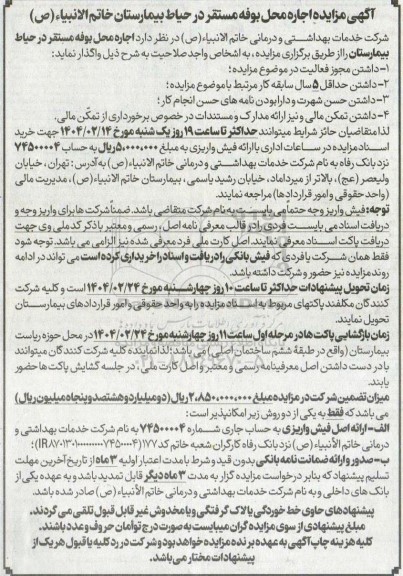 آگهی مزایده اجاره محل بوفه مستقر در حیاط بیمارستان خاتم الانبیاء (ص)
شرکت خدمات بهداشتی و درمانی خاتم الانبیاء (ص) در نظر دارد اجاره محل بوفه مستقر در حیاط
بیمارستان را از طریق برگزاری مزایده، به اشخاص واجد صلاحیت به شرح ذیل واگذار نماید:
۱- داشتن مجوز فعالیت در موضوع مزایده؛
۲- داشتن حداقل ۵ سال سابقه کار مرتبط با موضوع مزایده؛
۳- داشتن حسن شهرت و دارا بودن نامه های حسن انجام کار؛
۴- داشتن تمکن مالی و نیز ارائه مدارک و مستندات در خصوص برخورداری از تمکن مالی.
لذا متقاضیان حائز شرایط میتوانند حداکثر تا ساعت ۱۹ روز یک شنبه مورخ ۱۴۰۴/۰۲/۱۴ جهت خرید
اسناد مزایده در ساعات اداری با ارائه فیش واریزی به مبلغ ۵،۰۰۰،۰۰۰ ریال به حساب ۷۴۵۰۰۰۰۴
نزد بانک رفاه به نام شرکت خدمات بهداشتی و درمانی خاتم الانبیاء (ص) به آدرس: تهران، خیابان
ولیعصر (عج)، بالاتر از میرداماد، خیابان رشید یاسمی، بیمارستان خاتم الانبیاء (ص)، مدیریت مالی
(واحد حقوقی و امور قراردادها) مراجعه نمایند.
توجه: فیش واریز وجه حتما می بایست به نام شرکت متقاضی باشد. ضمناً شرکت ها برای واریز وجه و
دریافت اسناد می بایست فردی را در قالب معرفی نامه اصل، رسمی و معتبر با ذکر کد ملی وی جهت
دریافت پاکت اسناد معرفی نمایند. اصل کارت ملی فرد معرفی شده نیز الزامی می باشد. توجه شود
فقط همان شرکت یا فردی که فیش بانکی را دریافت و اسناد را خریداری کرده است می تواند در ادامه
روند مزایده نیز حضور و شرکت داشته باشد.
زمان تحویل پیشنهادات حداکثر تا ساعت ۱۰ روز چهارشنبه مورخ ۱۴۰۴/۰۲/۲۴ است و کلیه شرکت
کنندگان مکلفند پاکتهای مربوط به اسناد مزایده را به واحد حقوقی و امور قراردادهای بیمارستان
تحویل نمایند.
زمان بازگشایی پاکت ها در مرحله اول ساعت ۱۱ روز چهارشنبه مورخ ۱۴۰۴/۰۲/۲۴ در محل حوزه ریاست
بیمارستان (واقع در طبقه ششم ساختمان اصلی) می باشد؛ لذا نماینده کلیه شرکت کنندگان میتوانند
با در دست داشتن اصل معرفینامه رسمی و معتبر و اصل کارت ملی، در جلسه گشایش پاکت ها حضور
یابند.
میزان تضمین شرکت در مزایده مبلغ ۲،۸۵۰،۰۰۰،۰۰۰ ریال (دو میلیارد و هشتصد و پنجاه میلیون ریال)
می باشد که فقط به یکی از دو روش زیر امکانپذیر است:
الف- ارائه اصل فیش واریزی به حساب جاری شماره ۷۴۵۰۰۰۰۴ به نام شرکت خدمات بهداشتی و
درمانی خاتم الأنبیاء (ص) نزد بانک رفاه کارگران شعبه خاتم کد ۱۱۷۷
ب- صدور و ارائه ضمانت نامه بانکی بدون قید و شرط با مدت اعتبار اولیه ۳ ماه از تاریخ آخرین مهلت
تسلیم پیشنهاد که بنابر درخواست مزایده گزار به مدت ۳ ماه دیگر قابل تمدید باشد و به عهده یکی از
بانک های داخلی و به نام شرکت خدمات بهداشتی و درمانی خاتم الأنبیاء (ص) صادر شده باشد.
پیشنهادهای حاوی خط خوردگی یا لاک گرفتگی و یا مخدوش غیر قابل قبول تلقی می گردند.
مبلغ پیشنهادی از سوی مزایده گران میبایست به صورت درج توأمان حروف و عدد باشند.
کلیه هزینه چاپ آگهی به عهده برنده مزایده خواهد بود و شرکت در رد کلیه یا قبول هر یک از
پیشنهادات مختار می باشد.